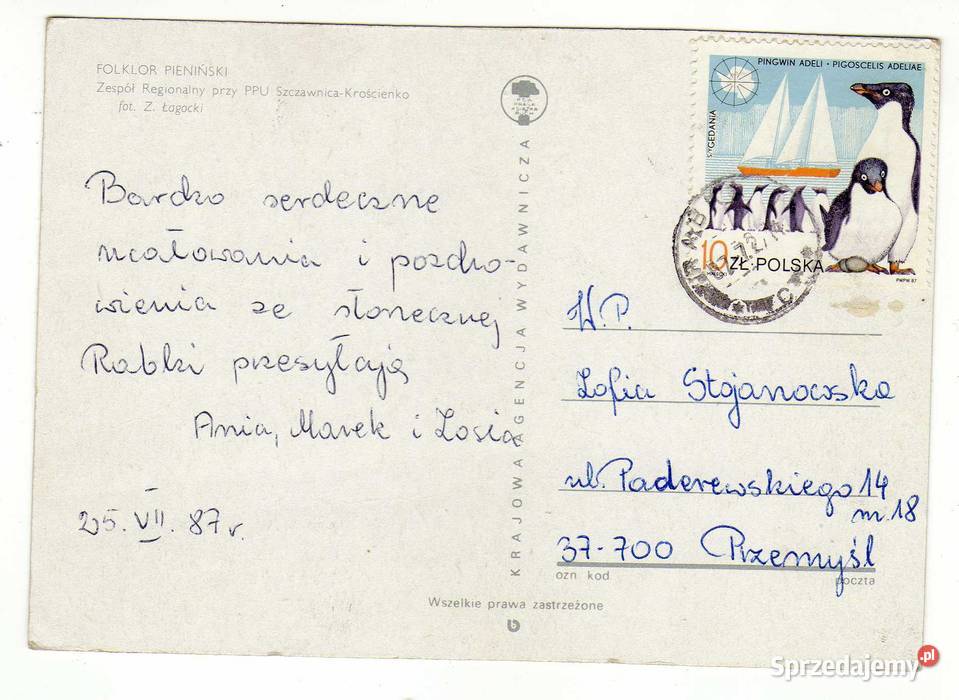 FOLKLOR PIENIŃSKI
Zespół Regionalny przy PPU Szczawnica-Krościenko
fot. Z. Łagocki
Bardzo serdeczne
ucałowania i pozdro-
wienia ze słonecznej
Rabki przesyłają
Ania, Marek i Zosia
25. VII. 87 r.
KRAJOWA AGENCJA WYDAWNICZA
Wszelkie prawa zastrzeżone
PINGWIN ADELI · PIGOSCELIS ADELIAE
S/Y GEDANIA
10 ZŁ POLSKA
PWPW 87
W.P.
Zofia Stojanowska
ul. Paderewskiego 14
m. 18
37-700 Przemyśl
ozn kod
poczta
Sprzedajemy.pl